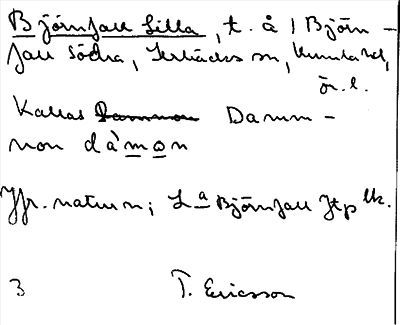 Björnfall Lilla, t. å 1 Björn-
fall Södra, Kumla hd,
ör. l.
Kallas Dammon Damm-
mon då`mon
Jfr. naturn; La Björnfall Htp lk.
3 T. Ericsson